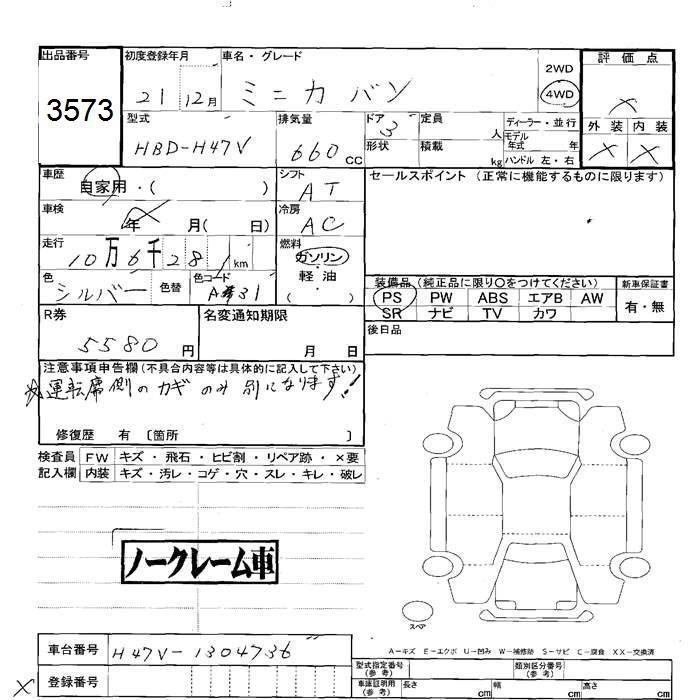 出品番号
3573
初度登録年月
21 12月
車名・グレード
ミニカ バン
2WD
4WD
評価点
×
型式
HBD-H47V
排気量
660 cc
ドア 3
形状
定員 人
積載 kg
ディーラー・並行
モデル年式 年
ハンドル 左・右
外装 内装
× ×
車歴
自家用・( )
シフト
AT
セールスポイント (正常に機能するものに限ります)
車検
年 月( 日)
冷房
AC
走行
10万6千28 km
燃料
ガソリン
・軽油
・( )
色
シルバー
色替
色コード
A31
装備品 (純正品に限り○をつけてください)
PS PW ABS エアB AW
SR ナビ TV カワ
新車保証書
有・無
R券
5580 円
名変通知期限
月 日
後日品
注意事項申告欄 (不具合内容等は具体的に記入して下さい)
運転席側のカギのみ別になります!
修復歴 有 〔箇所 〕
検査員 FW キズ・飛石・ヒビ割・リペア跡・×要
記入欄 内装 キズ・汚レ・コゲ・穴・スレ・キレ・破レ
ノークレーム車
スペア
車台番号 H47V-1304736
A-キズ E-エクボ U-凹み W-補修跡 S-サビ C-腐食 XX-交換済
× 登録番号
型式指定番号 (参考)
類別区分番号 (参考)
車庫証明用 (参考) 長さ cm 幅 cm 高さ cm